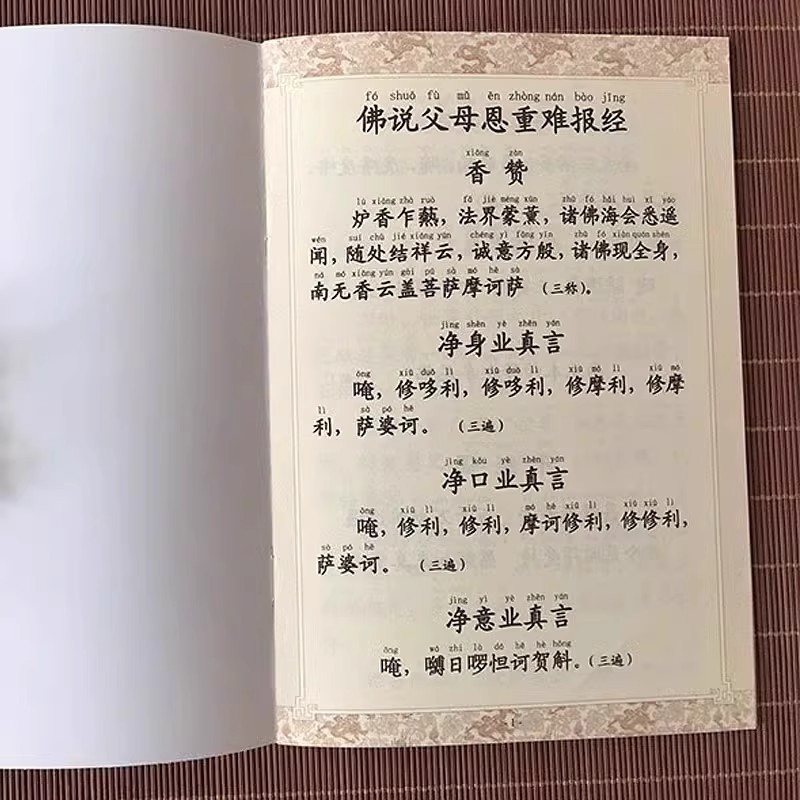 fó shuō fù mǔ ēn zhòng nán bào jīng
佛说父母恩重难报经
xiāng zàn
香赞
lú xiāng zhà ruò fǎ jiè méng xūn zhū fó hǎi huì xī yáo
炉香乍爇，法界蒙薰，诸佛海会悉遥
wén suí chù jié xiáng yún chéng yì fāng yīn zhū fó xiàn quán shēn
闻，随处结祥云，诚意方殷，诸佛现全身，
ná mó xiāng yún gài pú sà mó hē sà
南无香云盖菩萨摩诃萨（三称）。
jìng shēn yè zhēn yán
净身业真言
ōng xiū duō lì xiū duō lì xiū mó lì xiū mó
唵，修哆利，修哆利，修摩利，修摩
lì sà pó hē
利，萨婆诃。（三遍）
jìng kǒu yè zhēn yán
净口业真言
ōng xiū lì xiū lì mó hē xiū lì xiū xiū lì
唵，修利，修利，摩诃修利，修修利，
sà pó hē
萨婆诃。（三遍）
jìng yì yè zhēn yán
净意业真言
ōng wà zhī là dá hē hè hōng
唵，嚩日啰怛诃贺斛。（三遍）
- 1 -